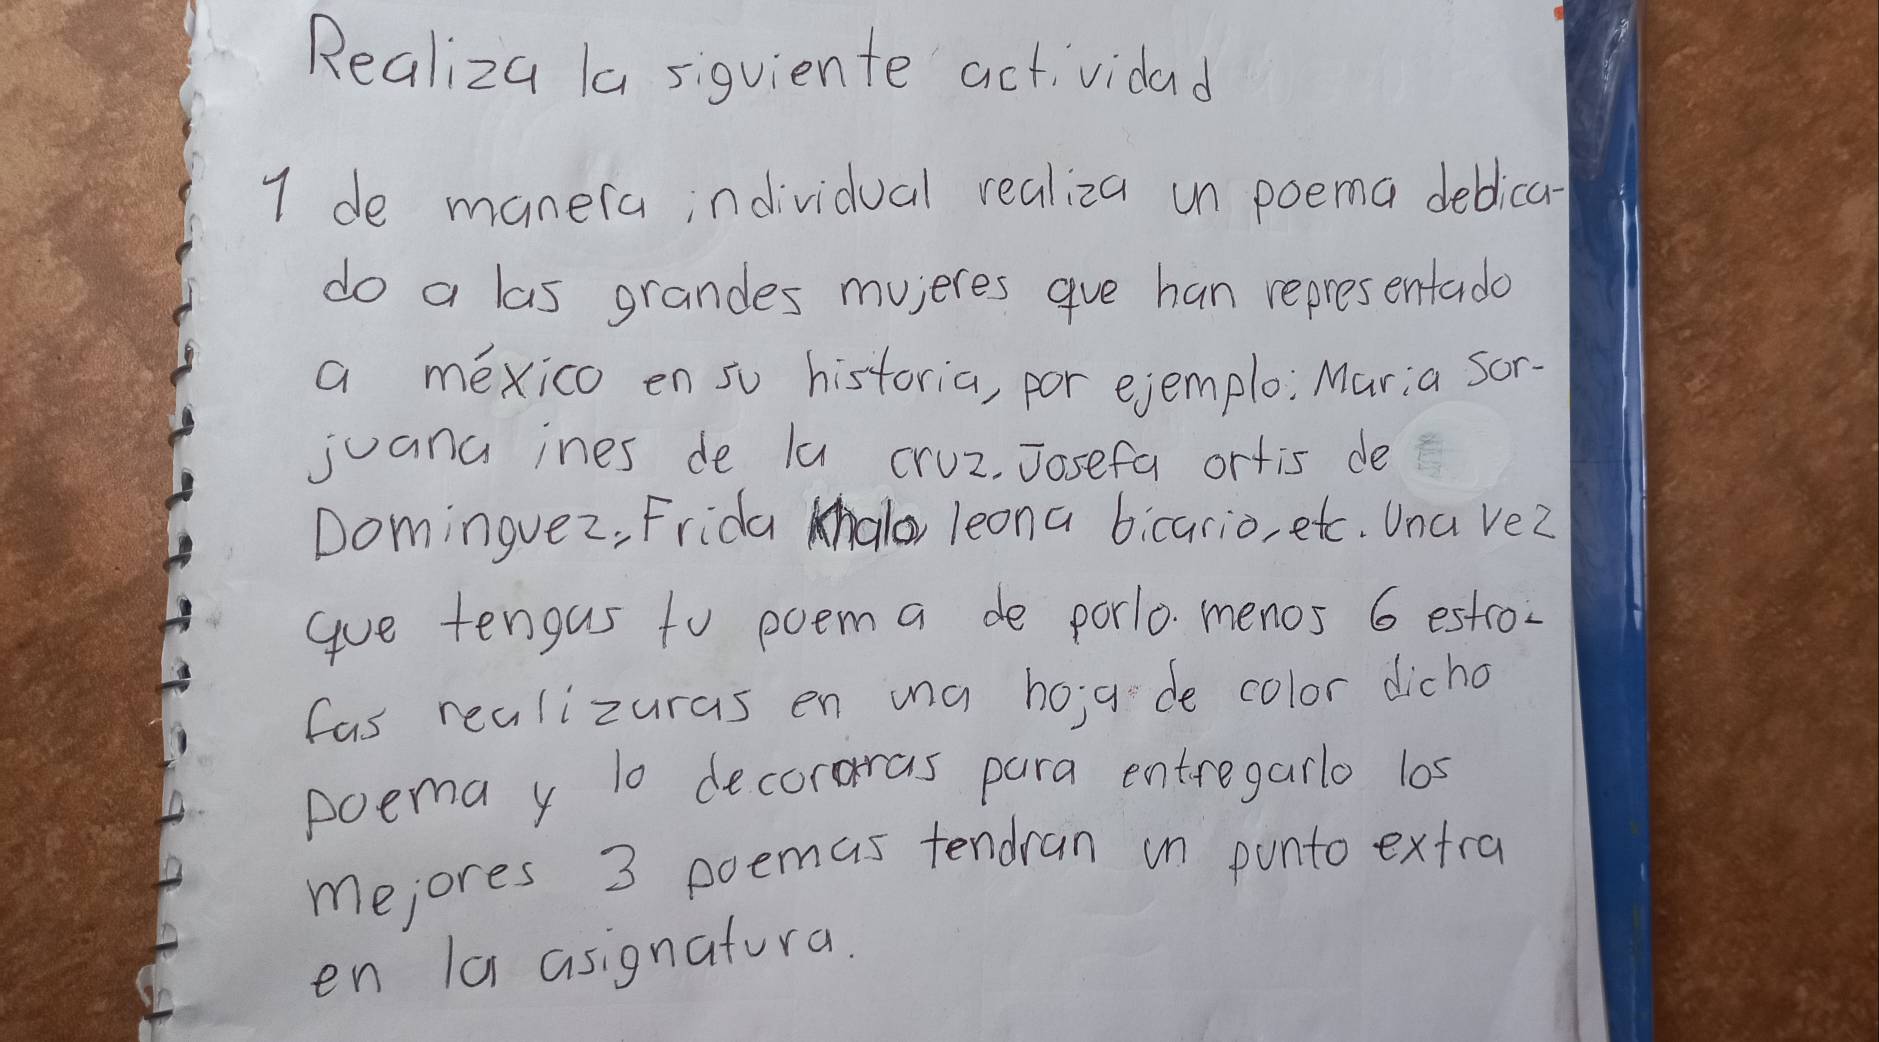 Realiza la siguiente actividad
1 de manera individual realiza un poema debica-
do a las grandes mujeres que han representado
a méxico en su historia, por ejemplo: Maria Sor-
juana ines de la cruz. Josefa ortis de
Dominguez, Frida Khalo leona bicario, etc. Una vez
que tengas tu poema de porlo menos 6 estro-
fas realizaras en una hoja de color dicho
poema y lo decoraras para entregarlo los
mejores 3 poemas tendran un punto extra
en la asignatura.